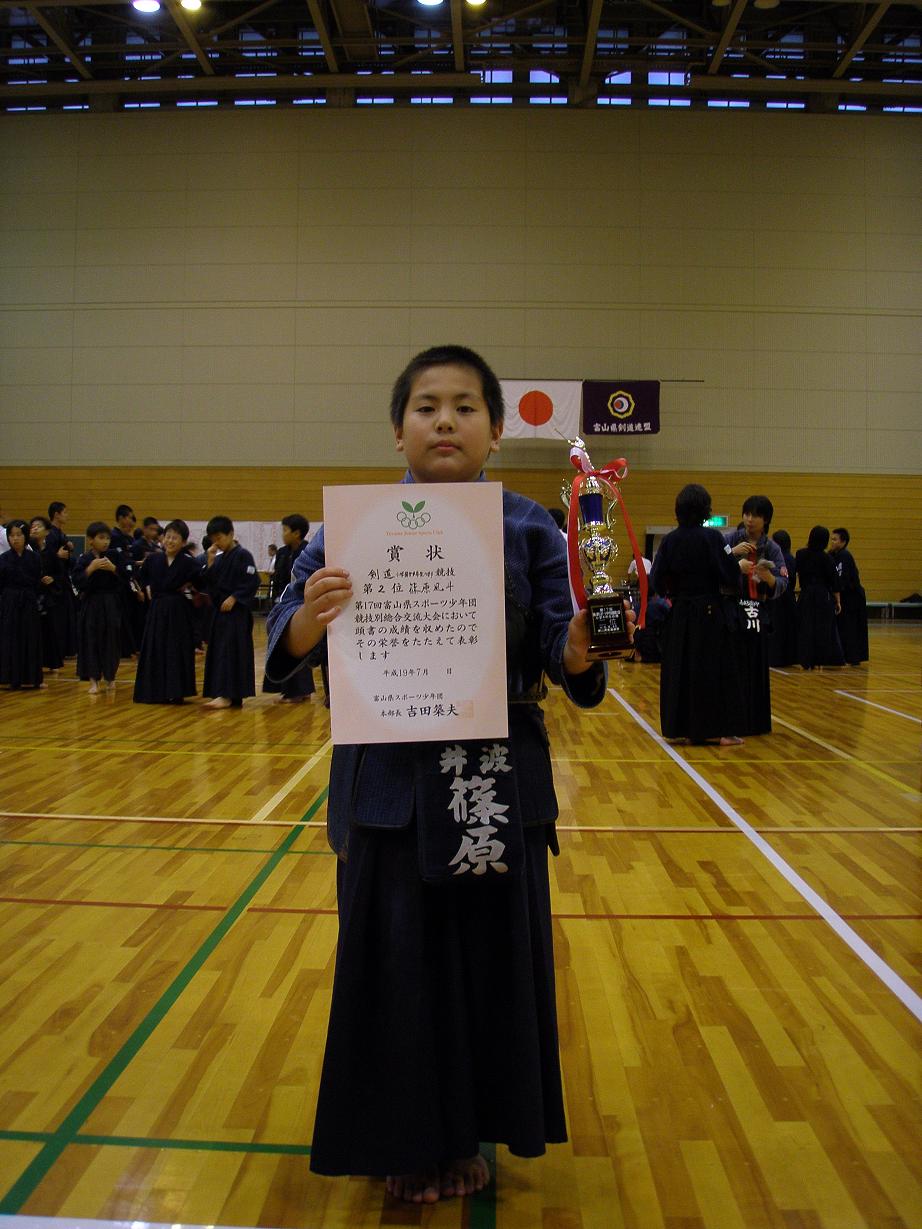 富山県剣道連盟
Toyama Junior Sports Club
賞 状
剣道 競技
第2位 篠原凪斗
第17回富山県スポーツ少年団
競技別総合交流大会において
頭書の成績を収めたので
その栄誉をたたえて表彰
します
平成19年7月 日
富山県スポーツ少年団
本部長 吉田築夫
古川
井波
篠原